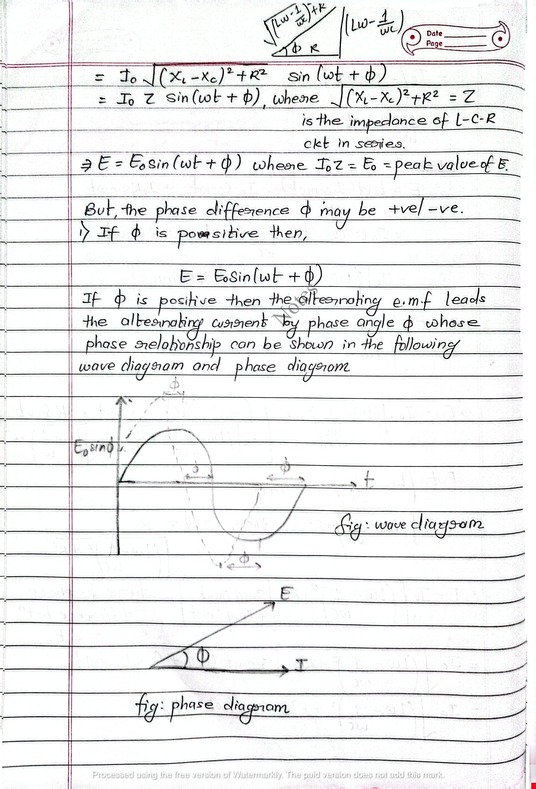 √(Lw-1/wc)²+R
(Lw-1/wc)
Φ R
Date
Page
= I₀ √(X_L-X_C)²+R² sin (wt + ϕ)
= I₀ Z sin(wt + ϕ), where √(X_L-X_C)²+R² = Z
is the impedance of L-C-R
ckt in series.
⇒ E = E₀sin(wt + ϕ) where I₀Z = E₀ = peak value of E.
But, the phase difference ϕ may be +ve/-ve.
i) If ϕ is positive then,
E = E₀sin(wt + ϕ)
If ϕ is positive then the alternating e.m.f leads
the alternating current by phase angle ϕ whose
phase relationship can be shown in the following
wave diagram and phase diagram
Notes
ϕ
E₀sinϕ
ϕ ϕ t
fig: wave diagram
ϕ
E
ϕ I
fig: phase diagram
Processed using the free version of Watermarkly. The paid version does not add this mark.